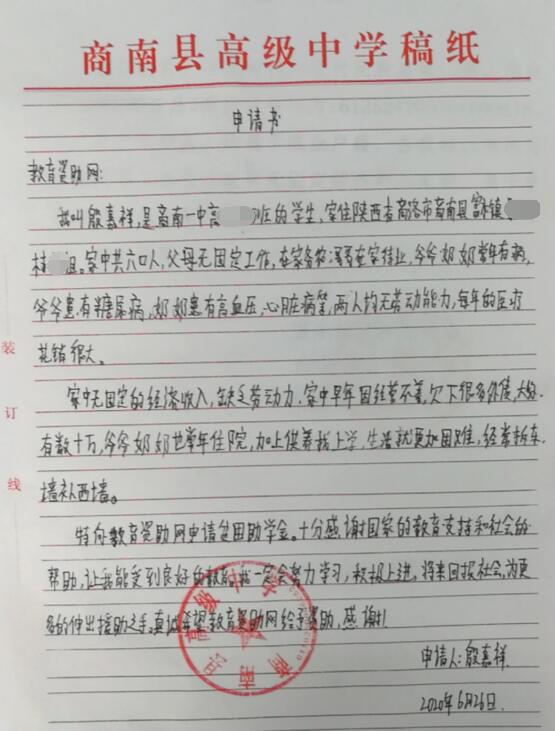 商南县高级中学稿纸
申请书
教育资助网:
我叫殷嘉祥,是商南一中高 班的学生,家住陕西省商洛市商南县富水镇
村 组。家中共六口人,父母无固定工作,在家务农,哥哥在家待业,爷爷奶奶常年有病,
爷爷患有糖尿病,奶奶患有高血压、心脏病等,两人均无劳动能力,每年的医疗
花销很大。
家中无固定的经济收入,缺乏劳动力,家中早年因经营不善,欠下很多外债,大约
有数十万,爷爷奶奶也常年住院,加上供养我上学,生活就更加困难,经常拆东
墙补西墙。
特向教育资助网申请贫困助学金。十分感谢国家的教育支持和社会的
帮助,让我能受到良好的教育,我一定会努力学习,积极上进,将来回报社会,为更
多的伸出援助之手。真诚希望教育资助网给予资助,感谢!
申请人:殷嘉祥.
2020年6月26日.
装
订
线
商南县高级中学